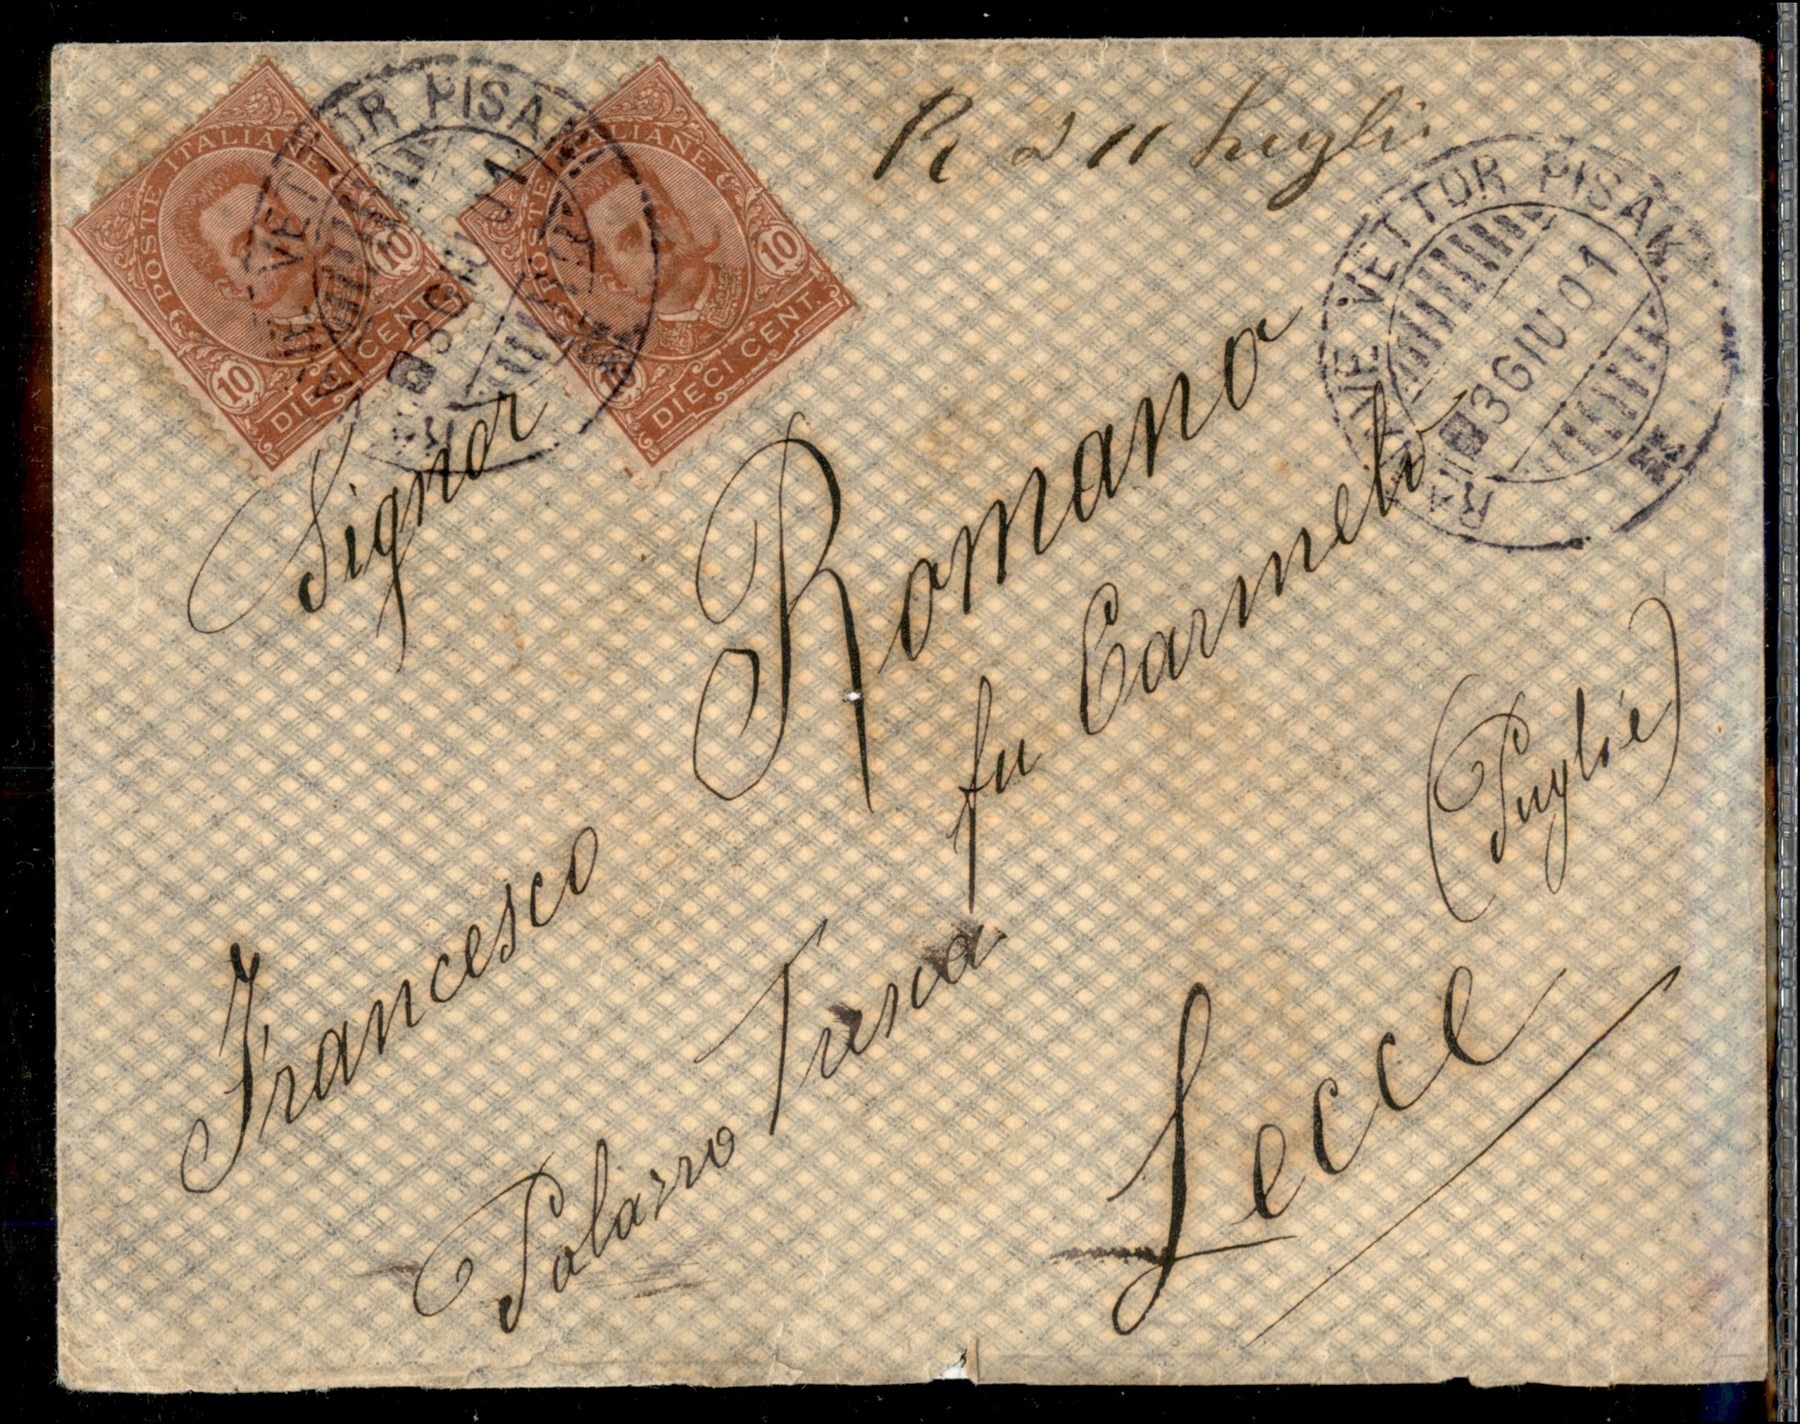 POSTE ITALIANE
10 10
DIECI CENT.
POSTE ITALIANE
10 10
DIECI CENT.
VETTOR PISANI
3 GIU 01
R 2 11 luglio
NAVE VETTOR PISANI
3 GIU 01
Signor
Romano
Francesco fu Carmelo
Palazzo Tresca
Lecce
(Puglie)